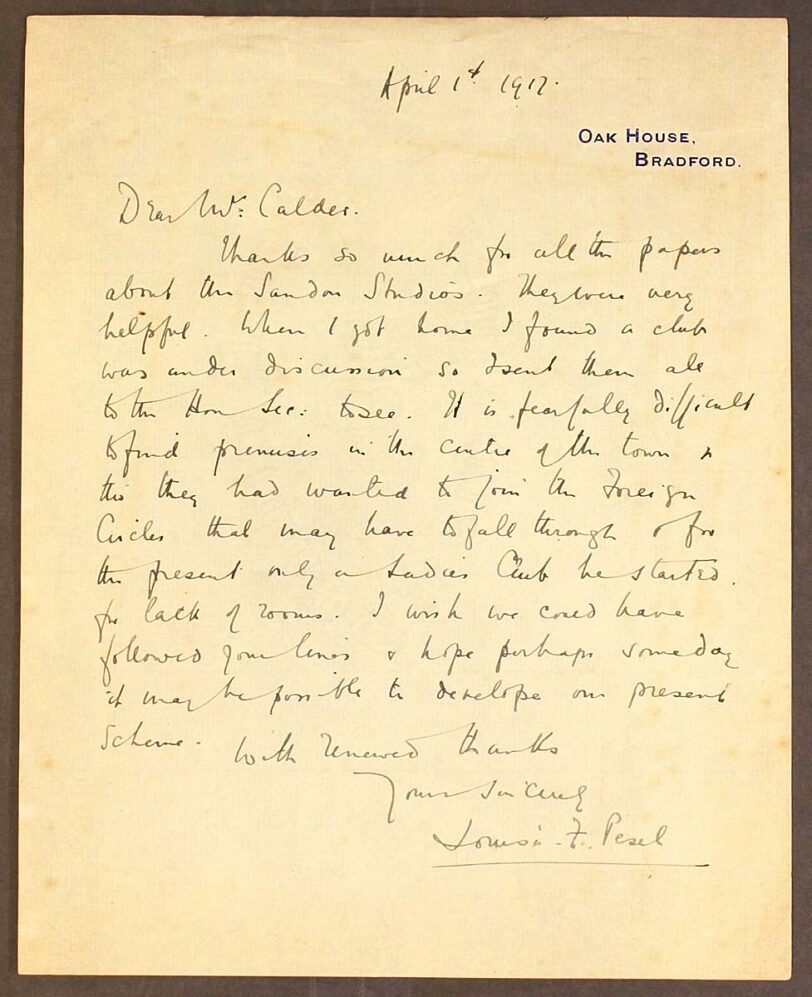 April 1st 1917.
OAK HOUSE,
BRADFORD.
Dear Mr. Calder.
Thanks so much for all the papers
about the Sandon Studios. They were very
helpful. When I got home I found a club
was under discussion so I sent them all
to the Hon Sec: to see. It is fearfully difficult
to find premises in the centre of the town &
tho they had wanted to join the Foreign
Circles that may have to fall through & for
the present only a Ladies Club be started.
for lack of rooms. I wish we could have
followed your lines & hope perhaps someday
it may be possible to develope our present
scheme.
With renewed thanks
Yours sincerely
Louisa. F. Pesel